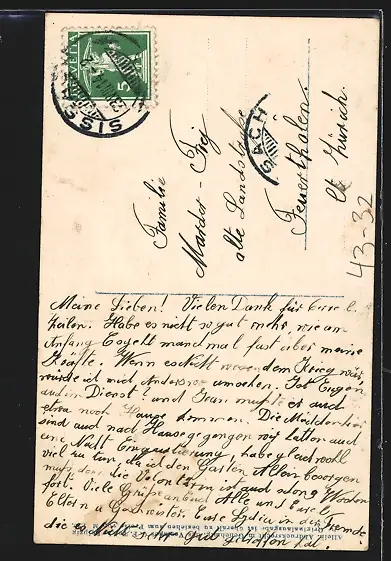 HELVETIA
5
SISSACH
Familie
Marder - Frej
alte Landstraße
Feuerthalen.
Ct Zürich.
43-32
Meine Lieben! Vielen Dank für
Zeilen. Habe es nicht so gut mehr wie am
Anfang Es geht manchmal fast über meine
Kräfte. Wenn es nicht wegen dem Krieg wär
würde ich mich Anderswo umsehen. Ist Eugen
auch im Dienst? und Jean mußte er auch
etwa nach Hause kommen. Die
sind auch nach Hause gegangen wir hatten auch
eine Nacht Einquartierung, habe gleichwohl
viel zu tun da ich den Garten Allein besorgen
muß, den die Volontärin ist auch schon Wochen
fort. Viele Grüße an Euch Alle und Eusel
Eltern u Geschwister. Eure Lydia in der Fremde
die es nicht sehr gut